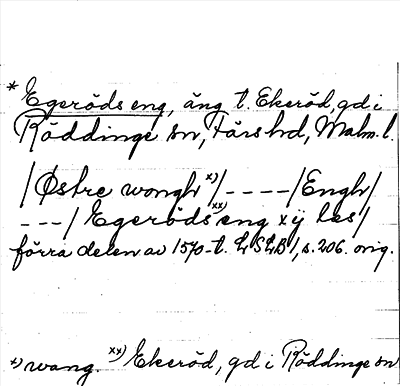 * Egeröds eng, äng t. Ekeröd, gd i
Röddinge sn, Färs hd, Malm. l.
/Østre wongh x)/----/Engh/
---/ Egeröds xx) eng xij les/
förra delen av 1570-t. LSLB I, s. 206. orig.
x) wang. xx) Ekeröd, gd i Röddinge sn